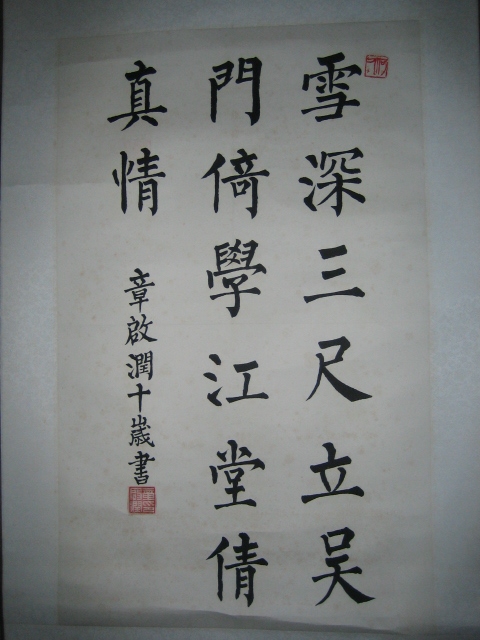 雪深三尺立吴
門倚學江堂倩
真情
章啟潤十歲書